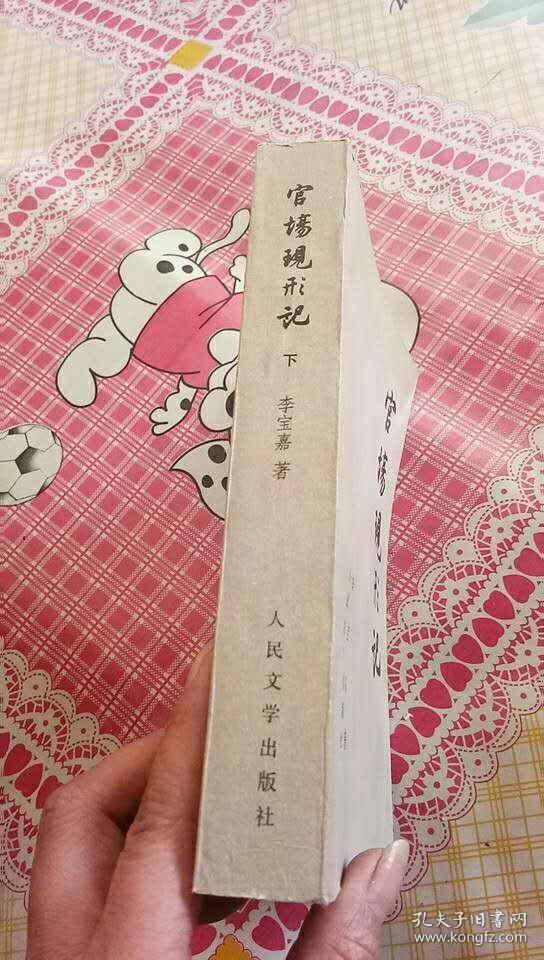 官場現形記
下
李宝嘉 著
人民文学出版社
官場現形记
孔夫子旧书网
www.kongfz.com